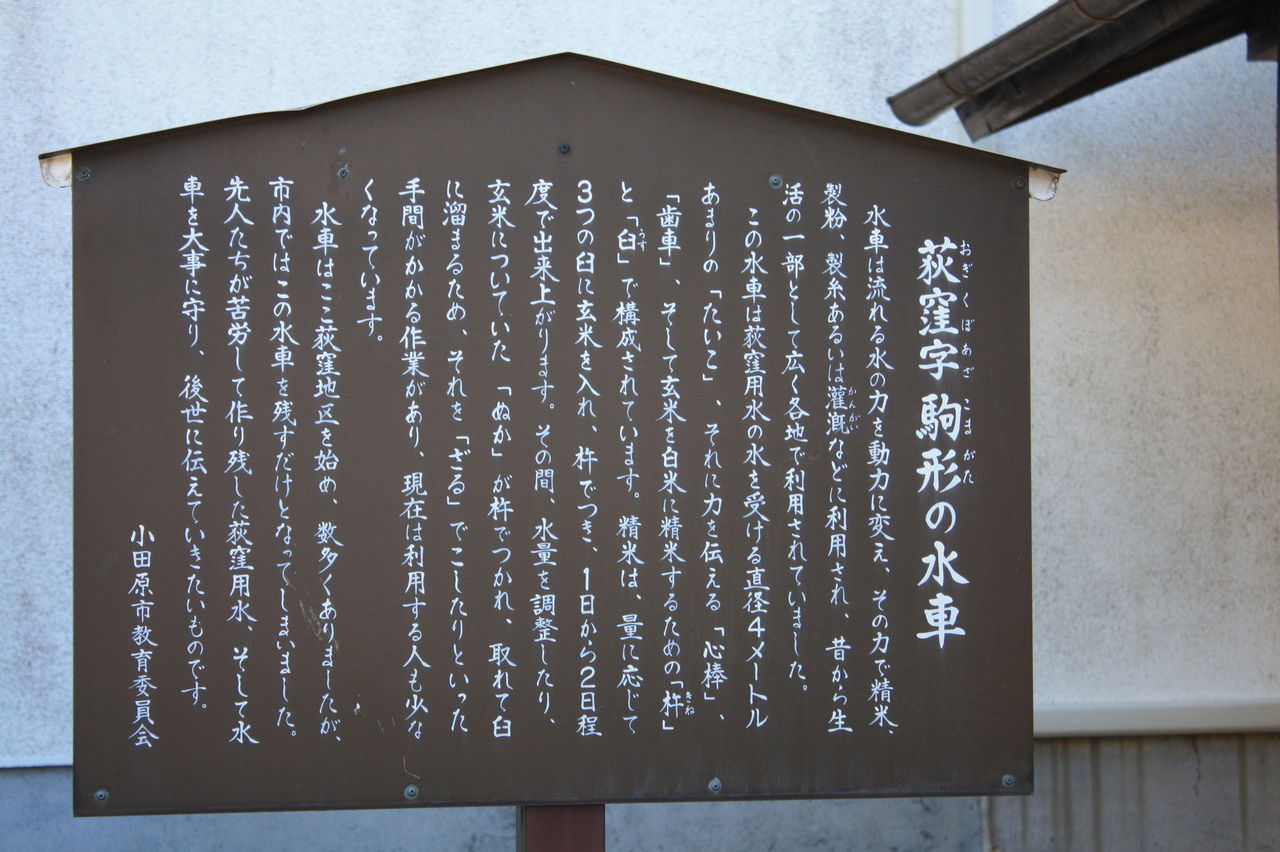 荻窪字 駒形の水車
おぎくぼあざ こまがた
水車は流れる水の力を動力に変え、その力で精米、
製粉、製糸あるいは灌漑などに利用され、昔から生
かんがい
活の一部として広く各地で利用されていました。
この水車は荻窪用水の水を受ける直径4メートル
あまりの「たいこ」、それに力を伝える「心棒」、
「歯車」、そして玄米を白米に精米するための「杵」
きね
と「臼」で構成されています。精米は、量に応じて
うす
3つの臼に玄米を入れ、杵でつき、1日から2日程
度で出来上がります。その間、水量を調整したり、
玄米についていた「ぬか」が杵でつかれ、取れて臼
に溜まるため、それを「ざる」でこしたりといった
手間がかかる作業があり、現在は利用する人も少な
くなっています。
水車はここ荻窪地区を始め、数多くありましたが、
市内ではこの水車を残すだけとなってしまいました。
先人たちが苦労して作り残した荻窪用水、そして水
車を大事に守り、後世に伝えていきたいものです。
小田原市教育委員会